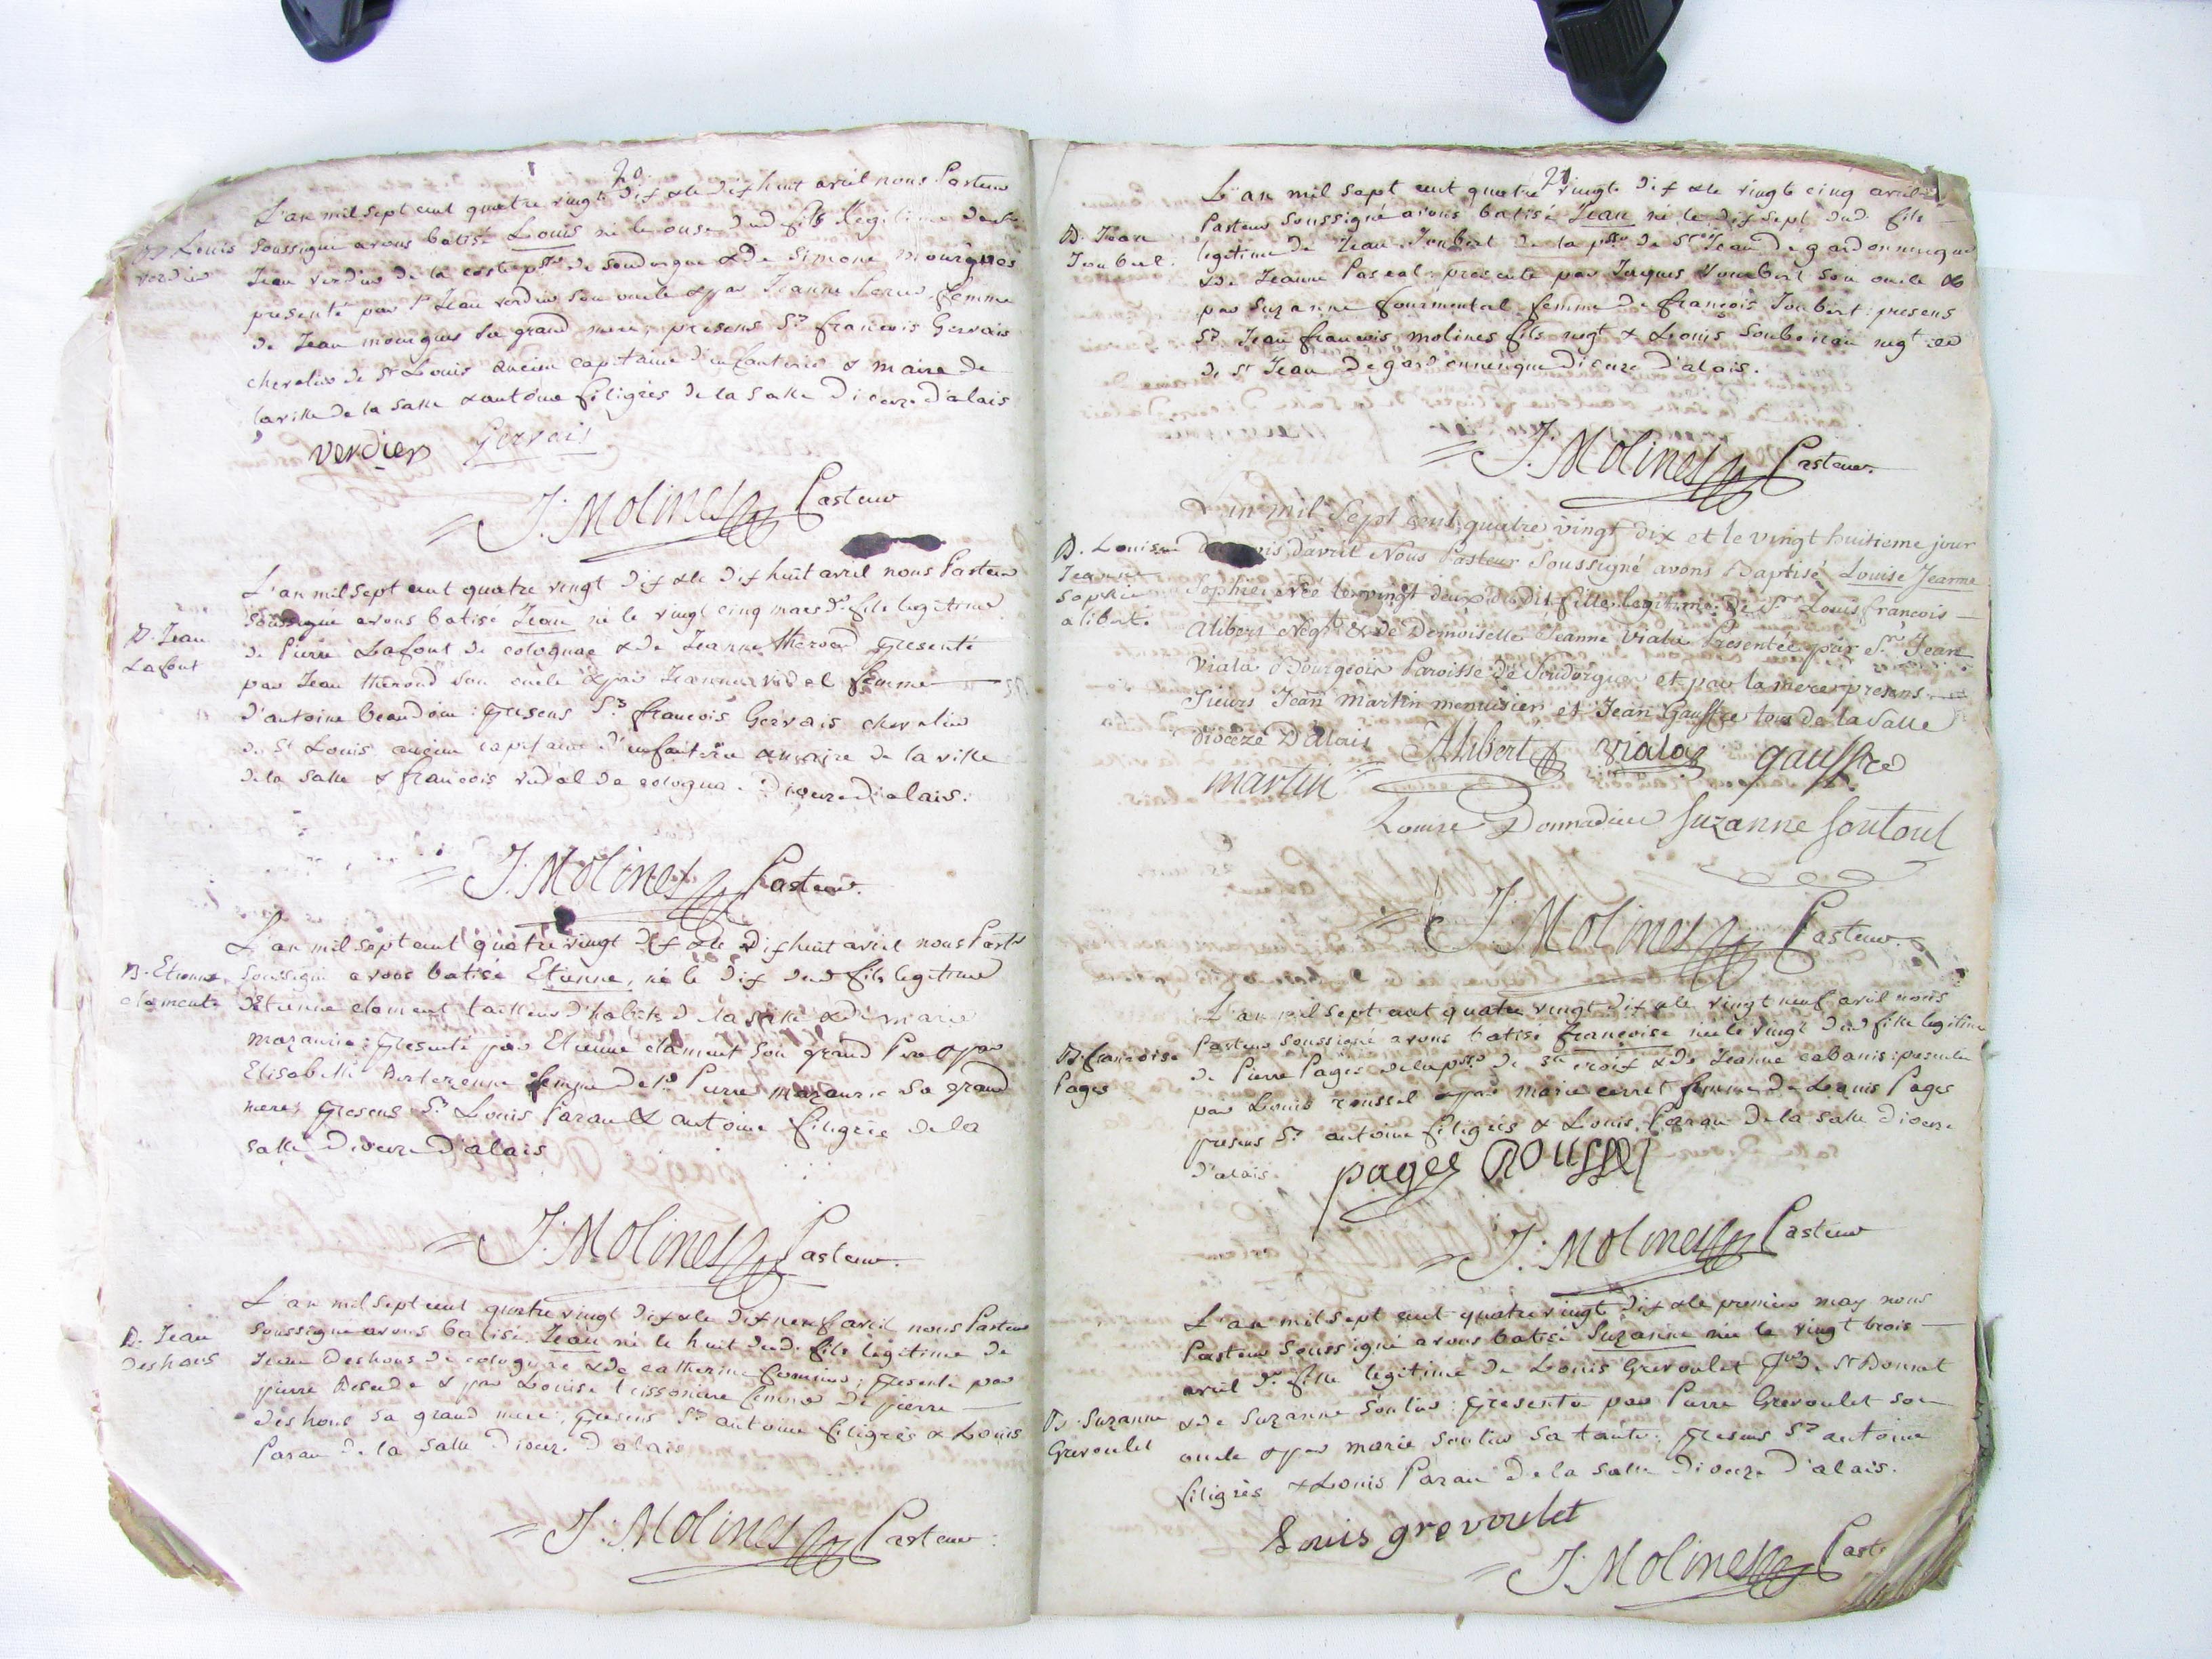 20
L'an mil sept cent quatre vingt dix & le dix huit avril nous Pasteur
B. Louis
verdier
soussigné avons batisé Louis né le onse dud fils legitime de
Jean verdier de la coste psse de soudorgue & de Simone mourgues
presenté par sr Jean verdier son oncle & par Jeanne femme
de Jean mourgues sa grand mere; presens Srs francois Gervais
chevalier de St Louis ancien capitaine d'infanterie & maire de
la ville de la Salle & antoine filigres de la Salle Dioceze d'alais
verdier Gervais
J. Molines Pasteur
L'an mil sept cent quatre vingt dix & le dix huit avril nous Pasteur
B. Jean
Lafont
soussigné avons batisé Jean né le vingt cinq mars dr fils legitime
de Pierre Lafont de colognac & de Jeanne therond presenté
par Jean therond son oncle & par Jeanne vidal femme
d'antoine beaudoin: presens Srs francois Gervais chevalier
de St Louis ancien capitaine d'infanterie & maire de la ville
de la Salle & francois vidal de cologna Dioceze d'alais.
J. Molines Pasteur.
L'an mil sept cent quatre vingt dix & le dix huit avril nous Pastr
B. Etienne
clement
soussigné avons batisé Etienne, né le dix dud fils legitime
d'Etienne clement tailleur d'habits de la Salle & de marie
mazaurie: presenté par Etienne clament son grand Pere & par
Elisabeth femme de sr Pierre mazauric sa grand
mere; presens Srs Louis Paran & antoine filigres de la
salle Dioceze d'alais
J. Molines Pasteur.
L'an mil sept cent quatre vingt dix & le dix neuf avril nous Pasteur
B. Jean
Deshons
soussigné avons batisé Jean né le huit dud. fils legitime de
Jean Deshons de cologniac & de catherine; presenté par
pierre & par Louise teissoniere femme de pierre
deshons sa grand mere; presens Srs antoine filigres & Louis
Paran de la Salle Dioceze d'alais
J. Molines Pasteur.
21
L'an mil sept cent quatre vingts dix & le vingt cinq avril
B. Jean
Joubert.
Pasteur soussigné avons batisé Jean né le dix sept dud. fils
legitime de Jean Joubert de la psse de St Jean de gardonnenque
& de Jeanne Pascal: presenté par Jaques Joubert son oncle &
par Suzanne fourmental femme de françois Joubert: presens
Srs Jean francois molines fils negt & Louis Soubeiran negt
de St Jean de gardonnenque Dioceze d'alais.
J. Molines Pasteur.
L'an mil Sept cent quatre vingt dix et le vingt huitieme jour
B. Louise
Jeanne
Sophie
alibert.
du mois d'avril Nous Pasteur Soussigné avons Baptisé Louise Jeanne
Sophie, née le vingt deux du dit fille legitime de Sr Louis francois
Alibert Negt & de Demoiselle Jeanne Viala Presentée par Sr Jean
Viala Bourgeois Paroisse de Soudorgues et par la mere presens
Sieurs Jean Martin menuisier et Jean Gaussre tous de la Salle
diocèze D'alais Alibert viala gaussre
martin
Louise Donnadieu Suzanne Soutoul
J. Molines Pasteur.
L'an mil sept cent quatre vingt dix & le vingt neuf avril nous
B. francoise
Pages
Pasteur soussigné avons batisé francoise née le vingt dud fille legitime
de Pierre Pages de la psse de Ste croix & de Jeanne cabanis: presentée
par Louis roussel & par marie femme de Louis Pages
presens Srs antoine filigres & Louis Paran de la Salle Dioceze
d'alais. pages Roussel
J. Molines Pasteur
L'an mil sept cent quatre vingt dix & le premier may nous
Pasteur soussigné avons batisé Suzanne née le vingt trois
B. Suzanne
Grevoulet
avril dr fille legitime de Louis Grevoulet St Bonnet
& de Suzanne Soulier: presentée par Pierre Grevoulet son
oncle & par marie soulier sa tante: presens Srs antoine
filigres & Louis Paran de la Salle Dioceze d'alais.
Louis grevoulet
J. Molines Past